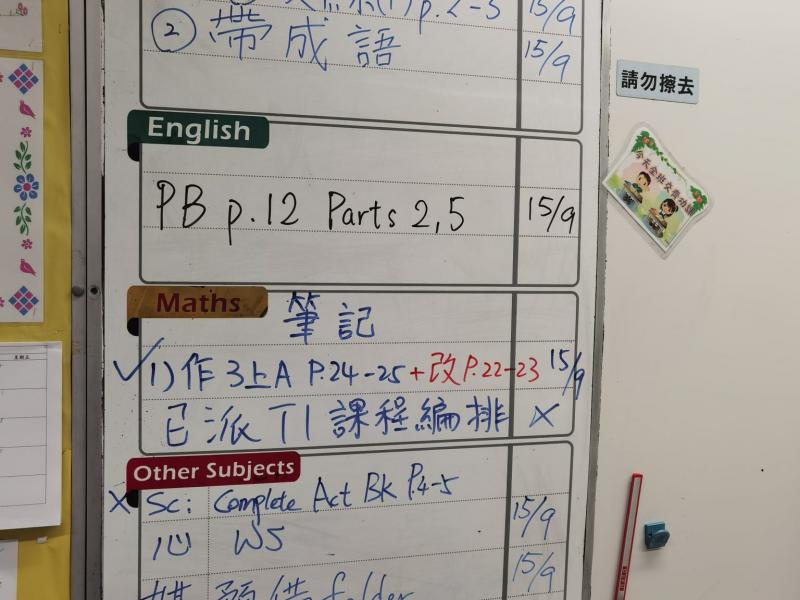 p.2-3 15/9
② 帶成語 15/9
English
PB p.12 Parts 2,5 15/9
Maths 筆記
✓ 1) 作 3上A P.24-25 + 改 P.22-23 15/9
已派 T1 課程編排 ×
Other Subjects
× Sc: Complete Act BK P.4-5 15/9
心 WS 15/9
folder
請勿擦去
今天全班交齊功課